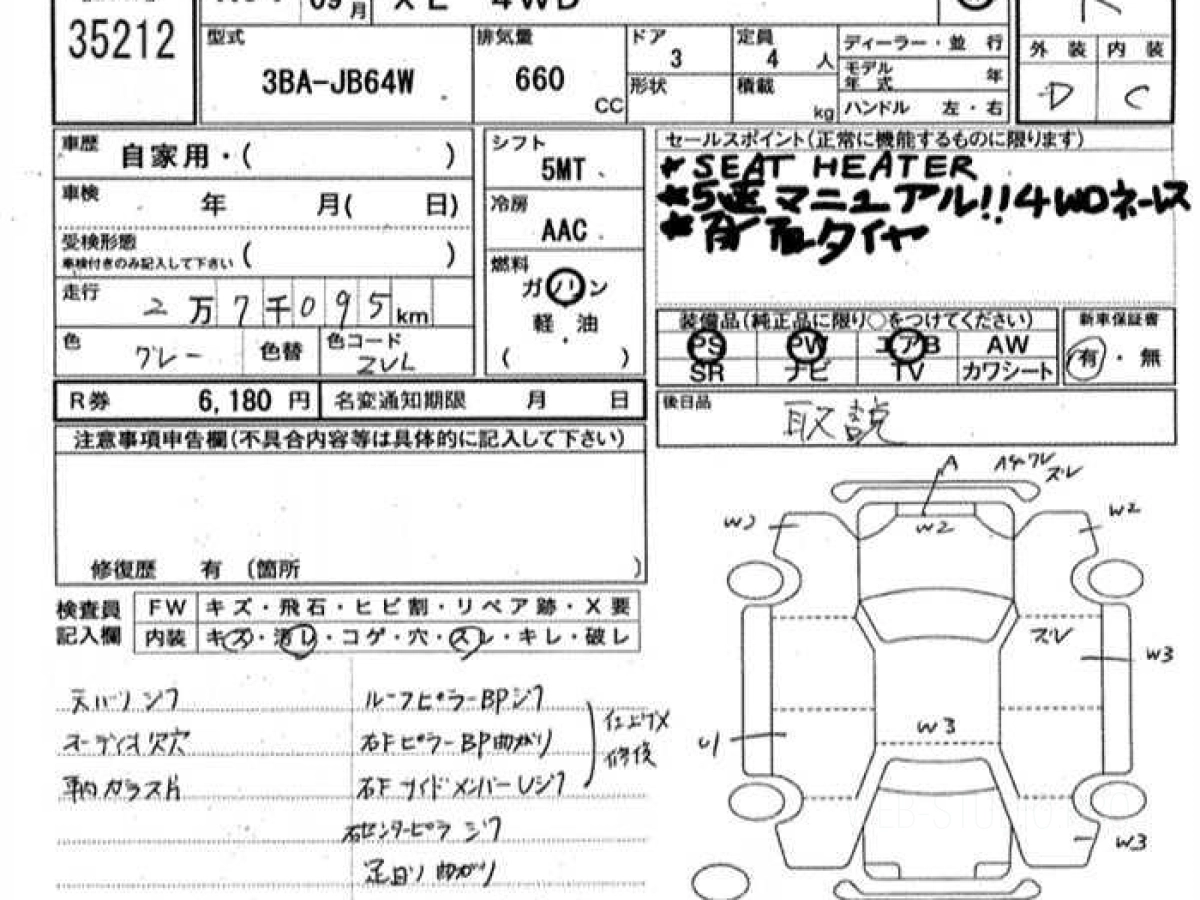 35212
09 月 XL 4WD
型式 3BA-JB64W
排気量 660 CC
ドア 3
形状
定員 4 人
積載 kg
ディーラー・並 行
モデル年式 年
ハンドル 左・右
外 装 内 装
D C
車歴 自家用・( )
車検 年 月( 日)
受検形態
車検付きのみ記入して下さい ( )
走行 2万7千095km
色 グレー 色替 色コード ZVL
シフト 5MT
冷房 AAC
燃料
ガソリン
軽 . 油
( )
セールスポイント(正常に機能するものに限ります)
*SEAT HEATER
*5速マニュアル!!4WD
タイヤ
装備品(純正品に限り○をつけてください)
PS PW エアB AW
SR ナビ TV カワシート
新車保証書
有・無
R券 6,180 円 名変通知期限 月 日
後日品 取説
注意事項申告欄(不具合内容等は具体的に記入して下さい)
修復歴 有 (箇所 )
検査員記入欄
FW キズ・飛石・ヒビ割・リペア跡・X要
内装 キズ・汚レ・コゲ・穴・スレ・キレ・破レ
天バリシワ ルーフピラーBPジワ
オーディオ欠穴 右FピラーBP曲がり
車内ガラス片 右FサイドメンバーUジワ
仕上ゲメ
修復
右センターピラージワ
足回り曲がり
A
ズレ
W2
W2
W2
ズレ
W3
W3
U1
W3